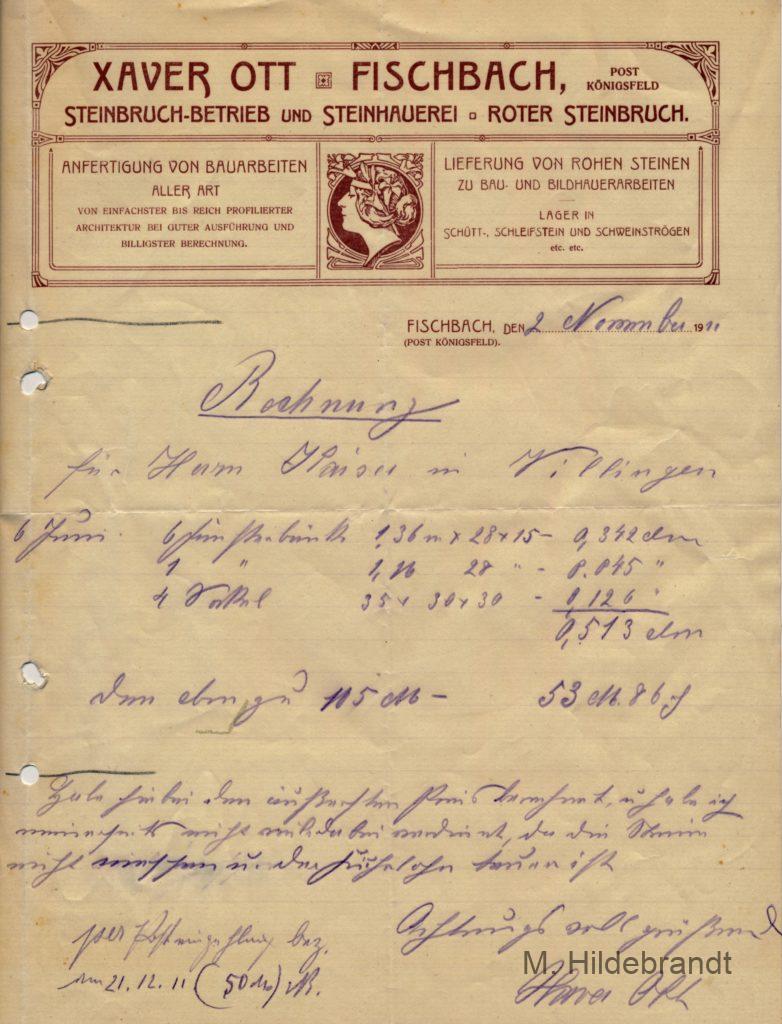 XAVER OTT FISCHBACH, POST KÖNIGSFELD
STEINBRUCH-BETRIEB UND STEINHAUEREI ROTER STEINBRUCH.
ANFERTIGUNG VON BAUARBEITEN
ALLER ART
VON EINFACHSTER BIS REICH PROFILIERTER
ARCHITEKTUR BEI GUTER AUSFÜHRUNG UND
BILLIGSTER BERECHNUNG.
LIEFERUNG VON ROHEN STEINEN
ZU BAU- UND BILDHAUERARBEITEN
LAGER IN
SCHÜTT-, SCHLEIFSTEIN UND SCHWEINSTRÖGEN
etc. etc.
FISCHBACH, DEN 2 November 1911
(POST KÖNIGSFELD).
Rechnung
für Herrn Kaiser in Villingen
6 Juni 6 Fensterbänke 1,36 m x 28 x 15 - 0,342 cbm
1 " 28 " - 0.045 "
4 Sockel 35 x 30 x 30 - 0,126 "
0,513 cbm
den cbm zu 105 M - 53 M. 86
Habe hiebei den äußersten Preis berechnet, u habe ich
meinerseits nicht dabei verdient, da die Steine
nicht u. der teuer ist
Achtungsvoll grüßend
per Posteinzahlung bez.
am 21.12.11 (50 M)
M. Hildebrandt
Xaver Ott